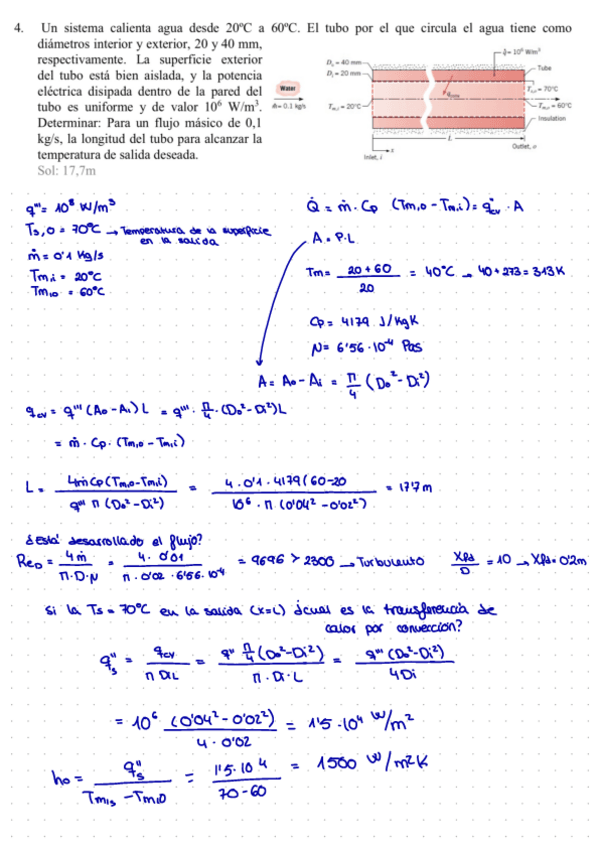 4. Un sistema calienta agua desde 20ºC a 60ºC. El tubo por el que circula el agua tiene como
diámetros interior y exterior, 20 y 40 mm,
respectivamente. La superficie exterior
del tubo está bien aislada, y la potencia
eléctrica disipada dentro de la pared del
tubo es uniforme y de valor 10⁶ W/m³.
Determinar: Para un flujo másico de 0,1
kg/s, la longitud del tubo para alcanzar la
temperatura de salida deseada.
Sol: 17,7m
Dₒ = 40 mm
Dᵢ = 20 mm
q̇ = 10⁶ W/m³
Tube
Water
ṁ = 0.1 kg/s
Tₘ,ᵢ = 20°C
Tₛ,ₒ = 70°C
Tₘ,ₒ = 60°C
Insulation
L
x
Inlet, i
Outlet, o
q''' = 10⁸ W/m³
Ts,o = 70ºC → Temperatura de la superficie
en la salida
ṁ = 0'1 Kg/s
Tm,i = 20ºC
Tm,o = 60ºC
Q̇ = ṁ · Cp (Tm,o - Tm,i) = q''cv · A
A = P·L
Tm = (20 + 60)/20 = 40ºC → 40 + 273 = 313 K
Cp = 4179 J/KgK
N = 6'56·10⁻⁴ Pas
A = Ao - Ai = π/4 (Do² - Di²)
qcv = q''' (Ao - Ai) L = q''' · π/4 · (Do² - Di²) L
= ṁ · Cp · (Tm,o - Tm,i)
L = 4ṁCp(Tm,o - Tm,i) / q''' π (Do² - Di²) = 4 · 0'1 · 4179 (60-20 / 10⁶ · π (0'04² - 0'02²) = 17'7 m
¿Está desarrollado el flujo?
ReD = 4ṁ / π·D·N = 4 · 0'01 / π · 0'02 · 6'56·10⁻⁴ = 9696 > 2300 → Turbulento Xfd/D = 10 → Xfd = 0'2m
Si la Ts = 70ºC en la salida (x=L) ¿cual es la transferencia de
calor por convección?
q''s = qcv / π Di L = q''' π/4 (Do² - Di²) / π · Di · L = q''' (Do² - Di²) / 4Di
= 10⁶ (0'04² - 0'02²) / 4 · 0'02 = 1'5 · 10⁴ W/m²
ho = q''s / Tm,s - Tm,o = 1'5·10⁴ / 70 - 60 = 1500 W/m²K